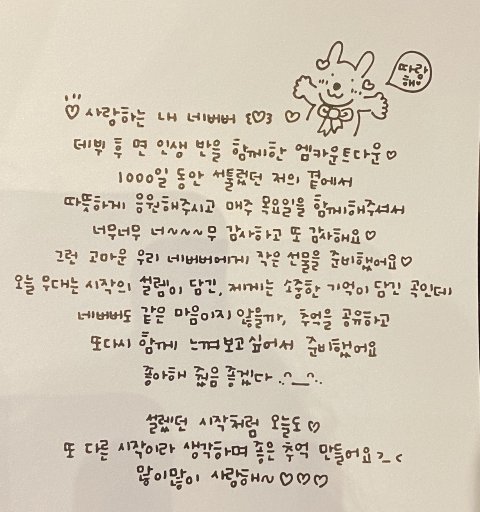 따랑
해♥
♡사랑하는 내 네버버 ꒰♡꒱ ♡
데뷔 후 면 인생 반을 함께한 엠카운트다운♡
1000일 동안 서툴렀던 저의 곁에서
따뜻하게 응원해주시고 매주 목요일을 함께해주셔서
너무너무 너~~~~무 감사하고 또 감사해요♡
그런 고마운 우리 네버버에게 작은 선물을 준비했어요♡
오늘 무대는 시작의 설렘이 담긴, 저에게는 소중한 기억이 담긴 곡인데
네버버도 같은 마음이지 않을까, 추억을 공유하고
또다시 함께 느껴보고싶어서 준비했어요
좋아해 줬음 좋겠다 .^__^.
설렜던 시작처럼 오늘도♡
또 다른 시작이라 생각하며 좋은 추억 만들어요>_<
많이많이 사랑해~♡♡♡